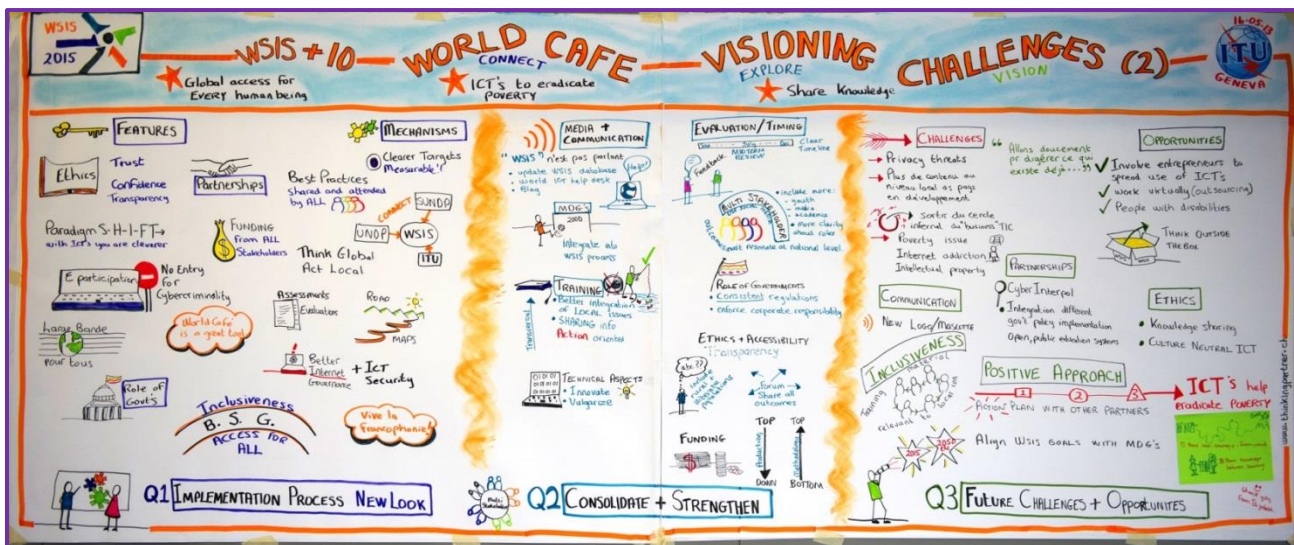 WSIS
2015
WSIS+10
WORLD CAFE
VISIONING
CHALLENGES (2)
CONNECT
EXPLORE
VISION
16-05-13
ITU
GENEVA
Global access for
EVERY human being
ICT's to eradicate
POVERTY
Share Knowledge
FEATURES
Ethics
Trust
Confidence
Transparency
Partnerships
Paradigm S-H-I-F-T→
with ICT's you are cleverer
FUNDING
FROM ALL
Stakeholders
E participation
No Entry
for
Cybercriminality
Large Bande
pour tous
"World Café"
is a great tool
Role of
Gov't's
Inclusiveness
B. S. G.
ACCESS FOR
ALL
MECHANISMS
Clearer Targets
Measurable!
Best Practices
Shared and attended
by ALL
CONNECT
UNDP
WSIS
ITU
Think Global
Act Local
Assessments
Evaluation
ROAD
MAPS
Better
Internet
Governance
+ ICT
Security
Vive la
Francophonie!
Q1 IMPLEMENTATION PROCESS NEW LOOK
MEDIA +
COMMUNICATION
"WSIS" n'est pas parlant
• update WSIS database
• world ICT help desk
• Blog
Help!
MDG's
2000
integrate into
WSIS process
TRAINING
Transversal
• Better integration
of LOCAL issues
• SHARING info
Action oriented
TECHNICAL ASPECTS
• Innovate
• Vulgarize
EVALUATION/TIMING
MIDTERM
REVIEW
Clear
Timeline
Feedback
MULTI STAKEHOLDER
• include more:
- youth
- media
- academia
• more clarity
about roles
outcomes must resonate at national level.
ROLE OF GOVERNMENTS
• consistent regulations
• enforce corporate responsibility
ETHICS + ACCESSIBILITY
Transparency
abc??
include
rural +
illiterate
populations
Forum
Share all
outcomes
FUNDING
TOP
DOWN
TOP
BOTTOM
Multi
Stakeholder
Q2 CONSOLIDATE + STRENGTHEN
CHALLENGES
→ Privacy threats
→ Plus de contenu au
niveau local as pays
en développement
→ Sortir du cercle
internal du business TIC
→ Poverty issue
Internet addiction
Intellectual property
"Allons doucement
pr digérer ce qui
existe déjà..."
OPPORTUNITIES
✓ Involve entrepreneurs to
spread use of ICT's
✓ work virtually (outsourcing)
✓ People with disabilities
THINK OUTSIDE
THE BOX
PARTNERSHIPS
Cyber Interpol
• Integration different
gov't policy implementation
Open, public education systems
COMMUNICATION
NEW LOGO/MASCOTTE
ETHICS
• Knowledge sharing
• CULTURE NEUTRAL ICT
INCLUSIVENESS
Training material
relevant to local
POSITIVE APPROACH
1 2 3
ACTION PLAN WITH OTHER PARTNERS
ICT's help
eradicate POVERTY
2015
Align WSIS GOALS WITH MDG's
Q3 FUTURE CHALLENGES + OPPORTUNITES